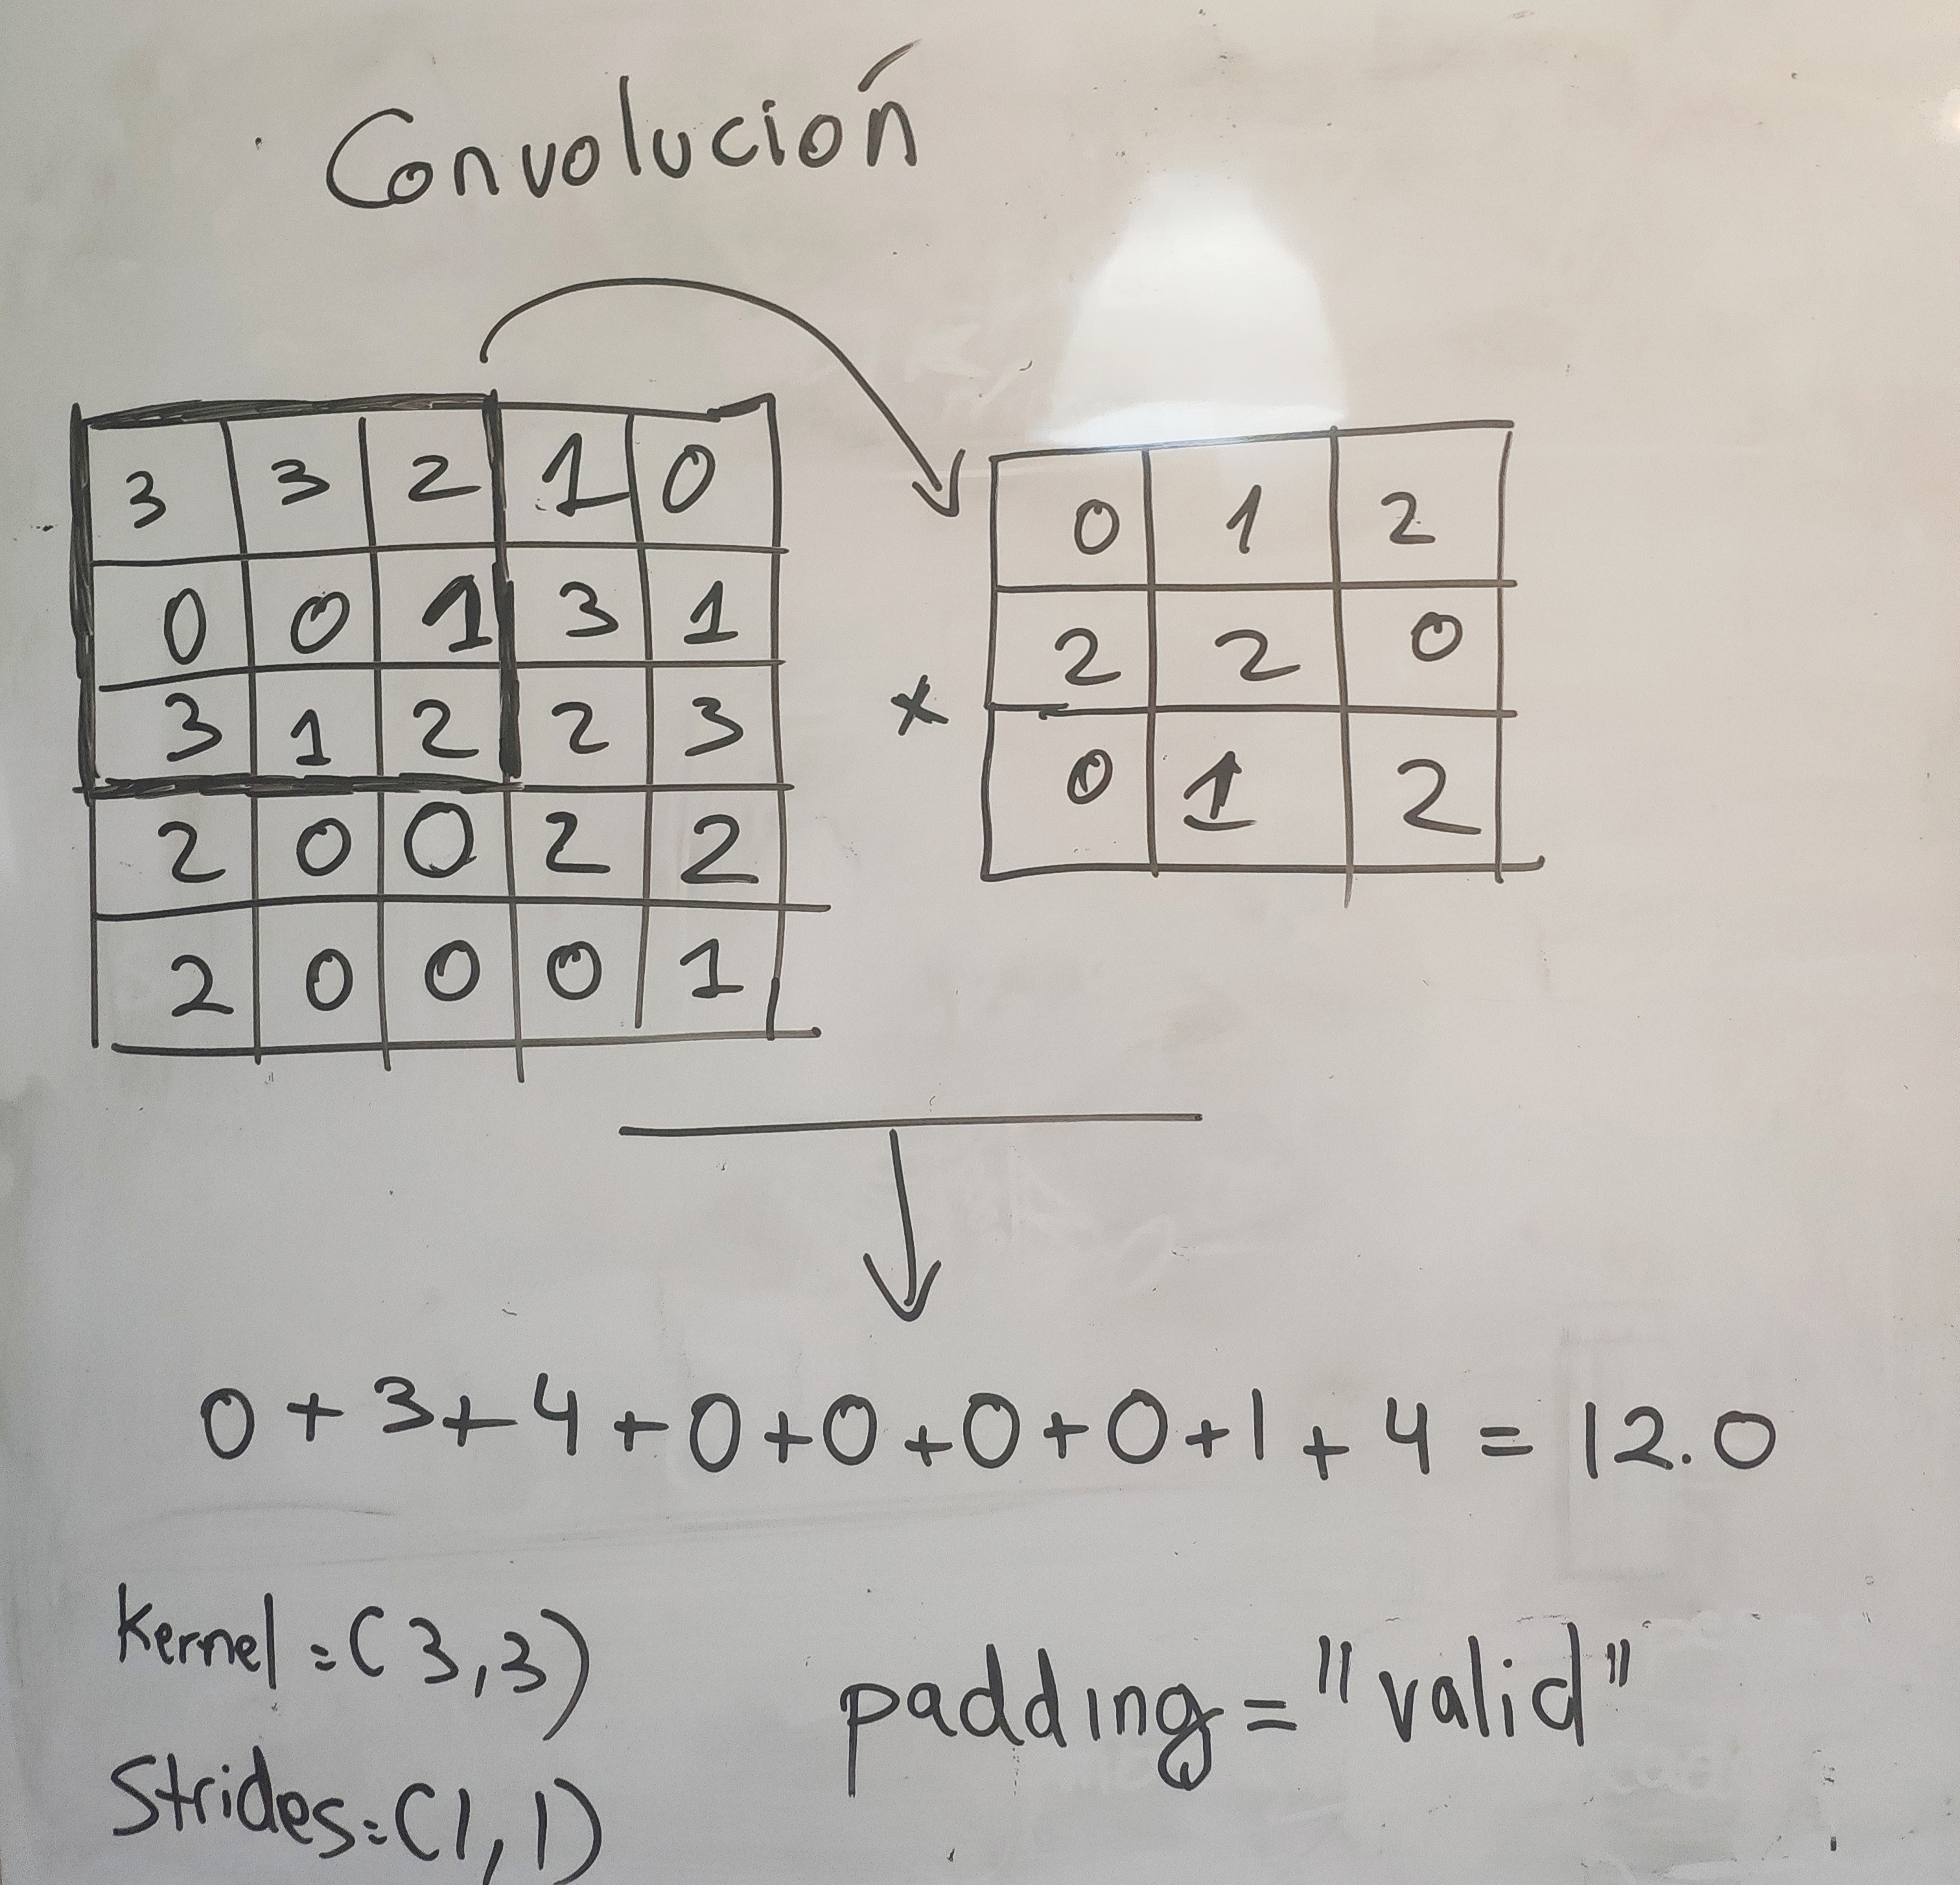 Convolución
3 3 2 1 0
0 0 1 3 1
3 1 2 2 3
2 0 0 2 2
2 0 0 0 1
x
0 1 2
2 2 0
0 1 2
0 + 3 + 4 + 0 + 0 + 0 + 0 + 1 + 4 = 12.0
Kernel = (3,3)
Strides = (1,1)
padding = "valid"